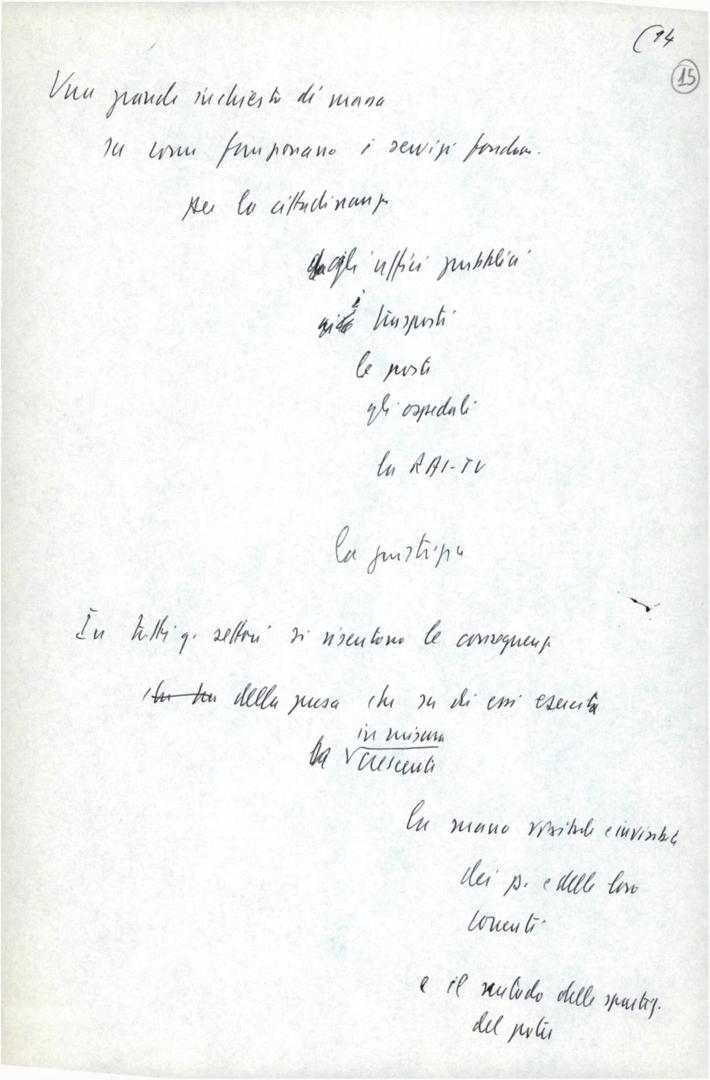 (14
15
Una grande inchiesta di massa
su come funzionano i servizi fondam.
per la cittadinanza
dagli uffici pubblici
i trasporti
le poste
gli ospedali
la RAI-TV
la giustizia
In tutti q. settori si risentono le conseguenze
che ha della presa che su di essi esercita
in misura
crescente
la mano visibile e invisibile
dei p. e delle loro
correnti
e il metodo della spartiz.
del potere